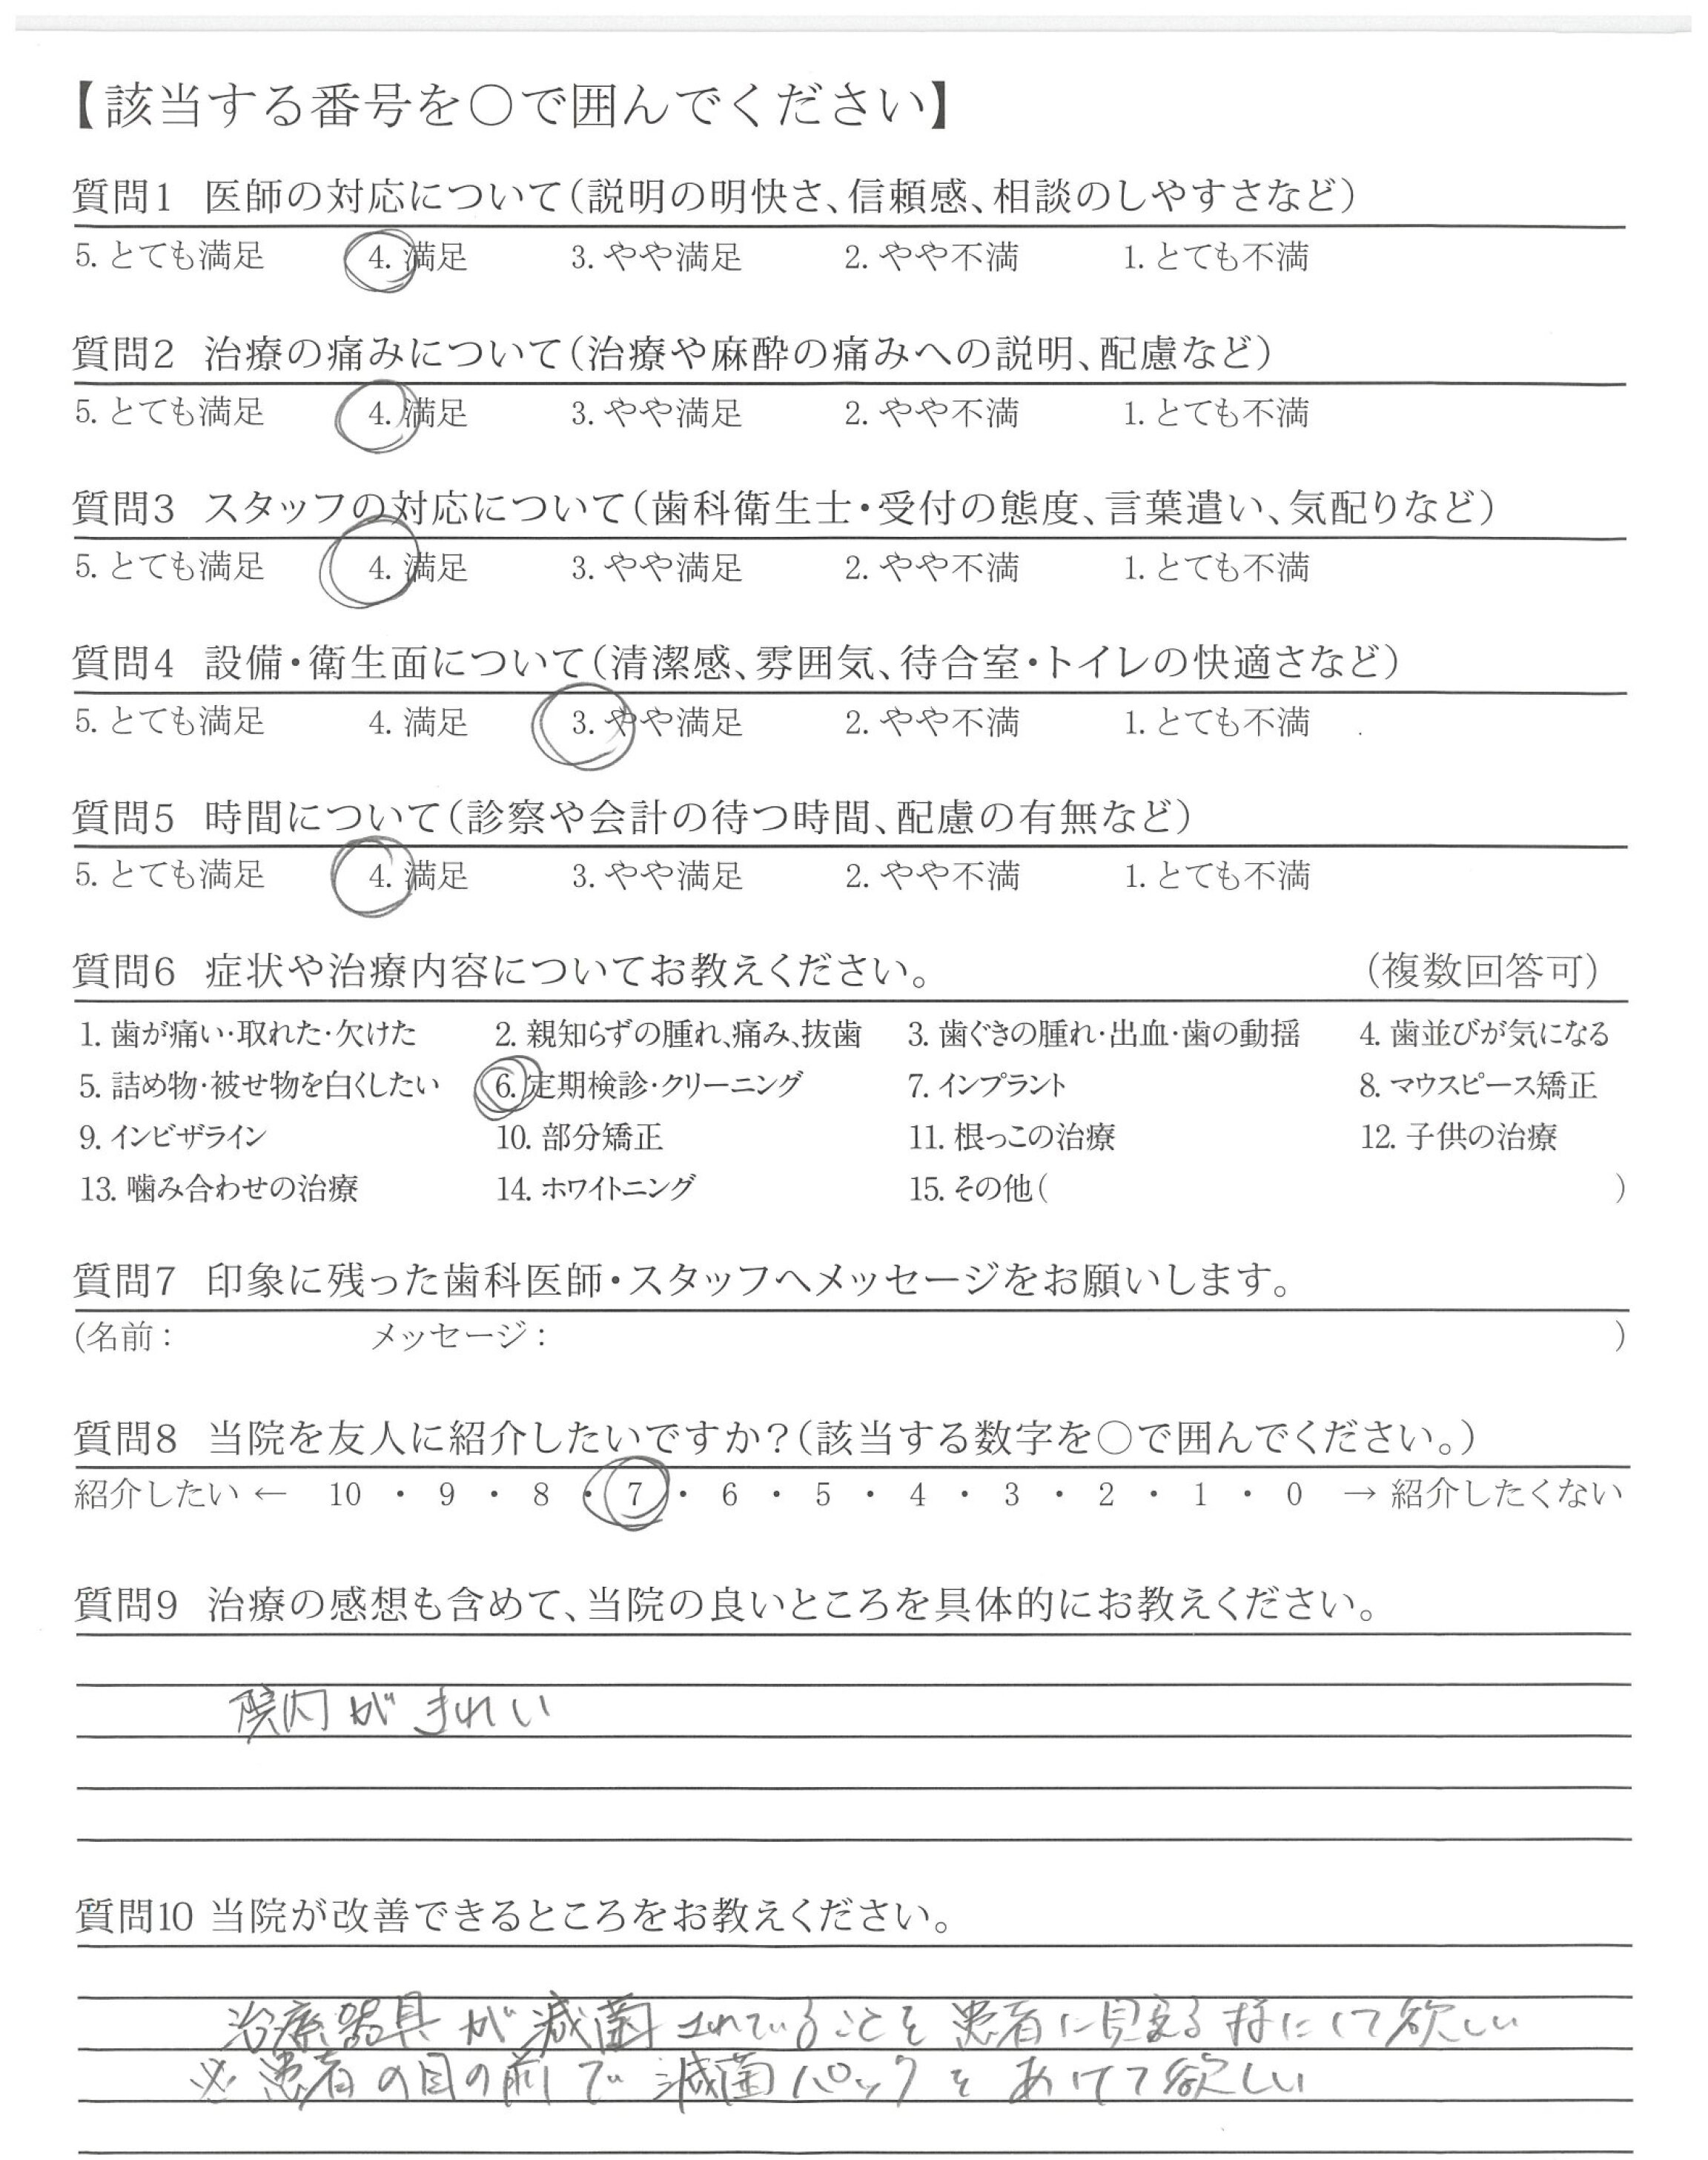 【該当する番号を○で囲んでください】
質問1 医師の対応について(説明の明快さ、信頼感、相談のしやすさなど)
5. とても満足 4. 満足 3. やや満足 2. やや不満 1. とても不満
質問2 治療の痛みについて(治療や麻酔の痛みへの説明、配慮など)
5. とても満足 4. 満足 3. やや満足 2. やや不満 1. とても不満
質問3 スタッフの対応について(歯科衛生士・受付の態度、言葉遣い、気配りなど)
5. とても満足 4. 満足 3. やや満足 2. やや不満 1. とても不満
質問4 設備・衛生面について(清潔感、雰囲気、待合室・トイレの快適さなど)
5. とても満足 4. 満足 3. やや満足 2. やや不満 1. とても不満
質問5 時間について(診察や会計の待つ時間、配慮の有無など)
5. とても満足 4. 満足 3. やや満足 2. やや不満 1. とても不満
質問6 症状や治療内容についてお教えください。 (複数回答可)
1. 歯が痛い・取れた・欠けた 2. 親知らずの腫れ、痛み、抜歯 3. 歯ぐきの腫れ・出血・歯の動揺 4. 歯並びが気になる
5. 詰め物・被せ物を白くしたい 6. 定期検診・クリーニング 7. インプラント 8. マウスピース矯正
9. インビザライン 10. 部分矯正 11. 根っこの治療 12. 子供の治療
13. 噛み合わせの治療 14. ホワイトニング 15. その他( )
質問7 印象に残った歯科医師・スタッフへメッセージをお願いします。
(名前: メッセージ: )
質問8 当院を友人に紹介したいですか?(該当する数字を○で囲んでください。)
紹介したい ← 10 ・ 9 ・ 8 ・ 7 ・ 6 ・ 5 ・ 4 ・ 3 ・ 2 ・ 1 ・ 0 → 紹介したくない
質問9 治療の感想も含めて、当院の良いところを具体的にお教えください。
院内がきれい
質問10 当院が改善できるところをお教えください。
治療器具が滅菌されていることを患者に見える様にして欲しい
※患者の目の前で滅菌パックをあけて欲しい